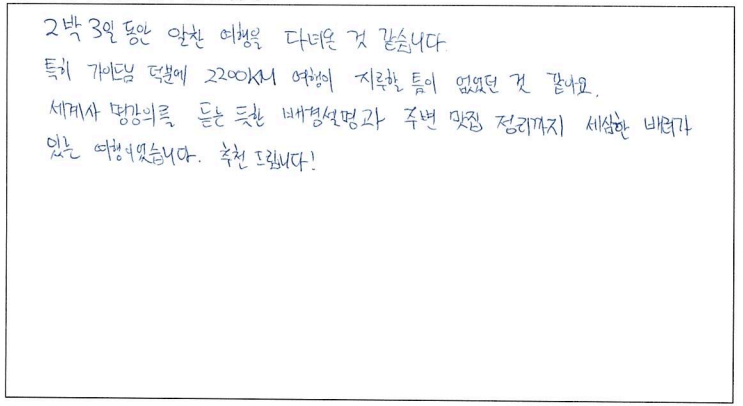 2박 3일 동안 알찬 여행을 다녀온 것 같습니다
특히 가이드님 덕분에 2200KM 여행이 지루할 틈이 없었던 것 같아요.
세계사 명강의를 듣는 듯한 배경설명과 주변 맛집 정리까지 세심한 배려가
있는 여행이었습니다. 추천 드립니다!